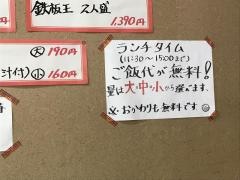 鉄板王 2人盛
1,390円
大 190円
汁付) 小 160円
ランチタイム
(11:30～15:00まで)
ご飯代が無料!
量は大・中・小から選べます。
※おかわりも無料です